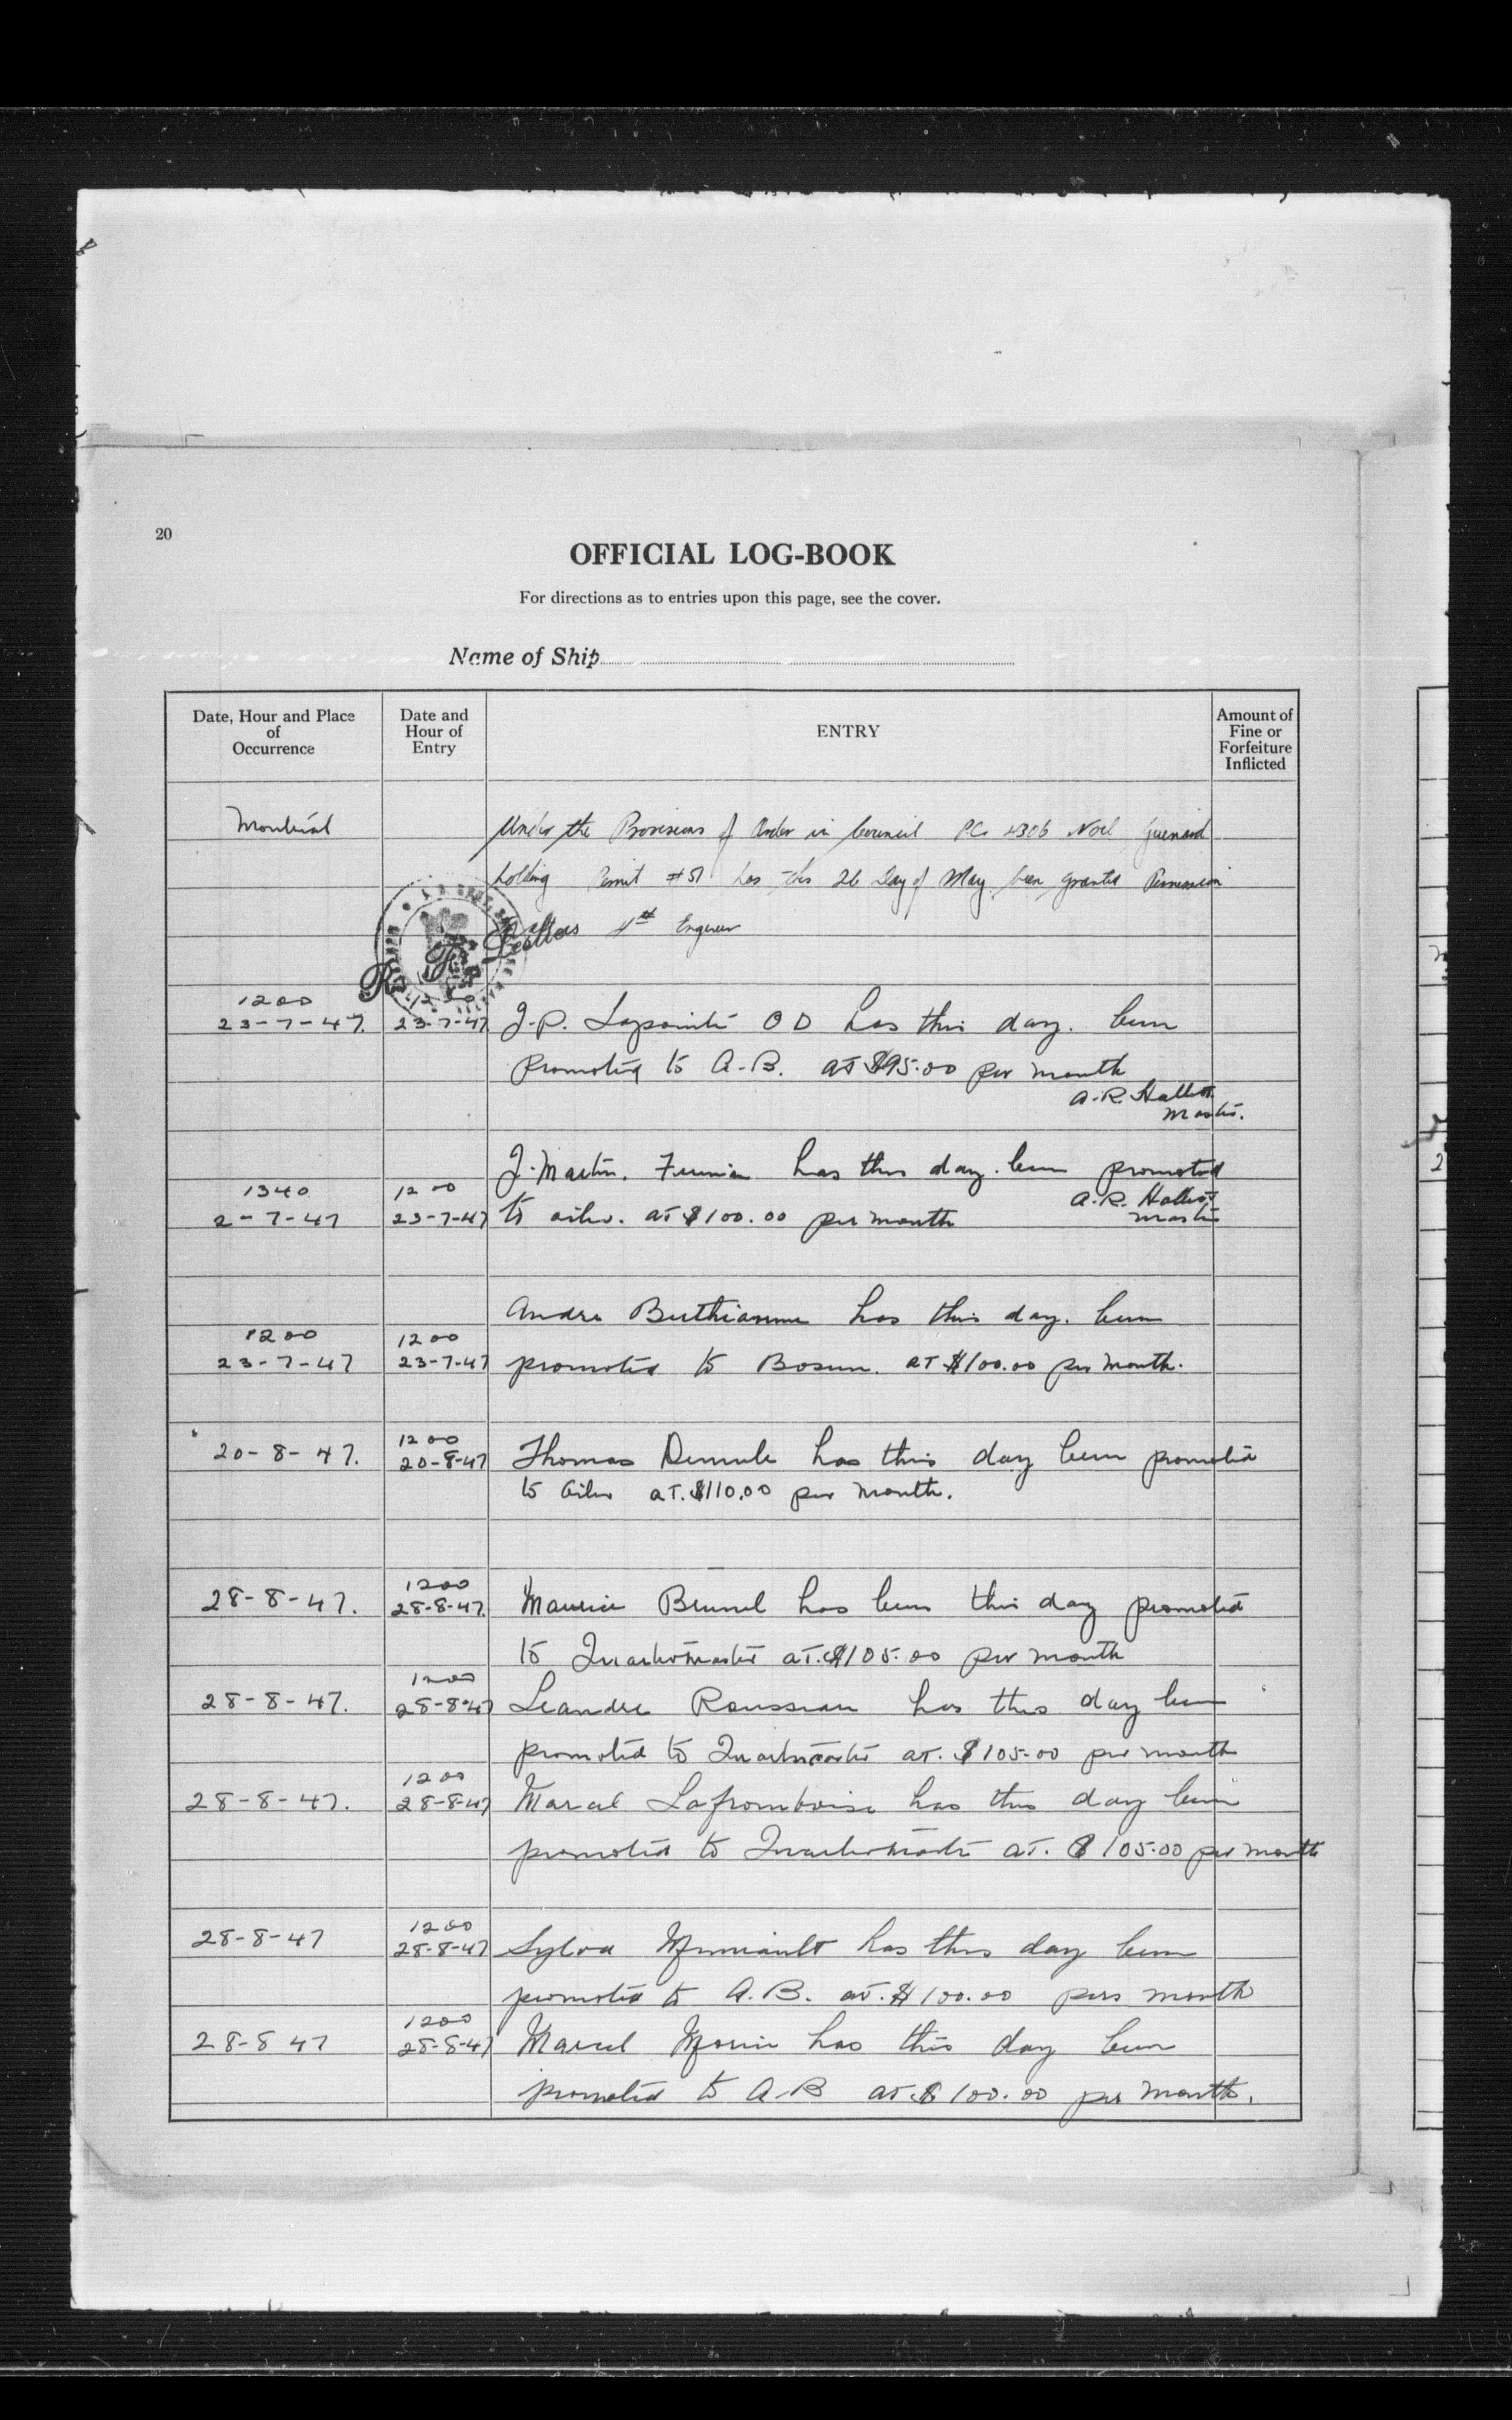 20
OFFICIAL LOG-BOOK
For directions as to entries upon this page, see the cover.
Name of Ship
Date, Hour and Place of Occurrence
Date and Hour of Entry
ENTRY
Amount of Fine or Forfeiture Inflicted
Montreal Under the Provisions of Order in Council P.C. 4306 Noel Guenard
holding Permit #51 has this 26 Day of May been granted Permission
to act as 4th Engineer
1200 1200
23-7-47. 23-7-47 J.P. Lapointe O D has this day. been
promoted to A.B. at $95.00 per month
A.R. Hallett
Master.
J. Martin. Fireman has this day. been promoted
1340 1200 A.R. Hallett
2-7-47 23-7-47 to oiler. at $100.00 per month Master
Andre Berthiaume has this day. been
1200 1200
23-7-47 23-7-47 promoted to Bosun. at $100.00 per month.
1200
20-8-47. 20-8-47 Thomas has this day been promoted
to Oiler at. $110.00 per month.
1200
28-8-47. 28-8-47. Maurice Brunel has been this day promoted
to Quartermaster at. $105.00 per month
1200
28-8-47. 28-8-47 Leandre Rousseau has this day been
promoted to Quartermaster at. $105.00 per month
1200
28-8-47. 28-8-47 Marcel Laframboise has this day been
promoted to Quartermaster at. $105.00 per month
1200
28-8-47 28-8-47 Sylva has this day been
promoted to A.B. at. $100.00 per month
1200
28-8 47 28-8-47 Marcel Morin has this day been
promoted to A-B at. $100.00 per month.